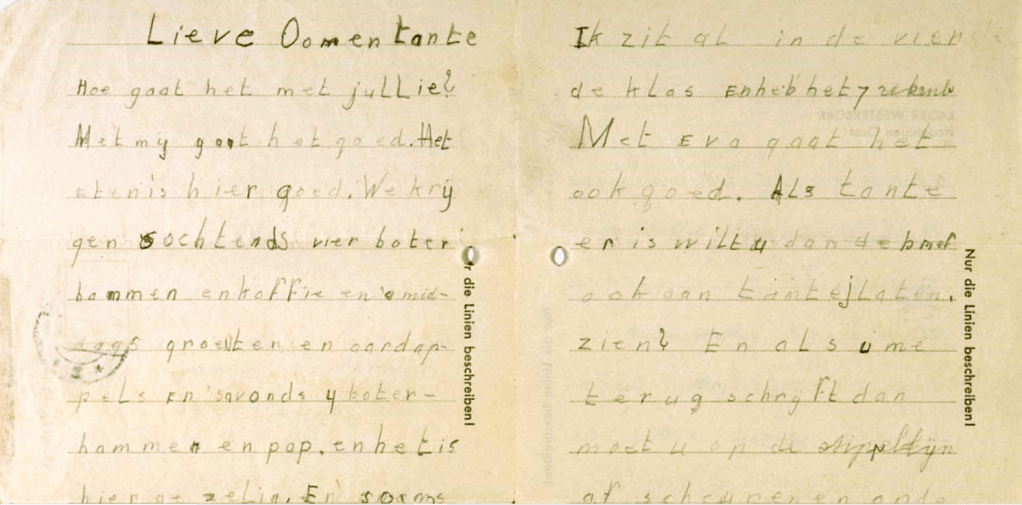 Lieve Oom en tante
Hoe gaat het met jullie?
Met mij gaat het goed. Het
eten is hier goed. We krij
gen sochtends vier boter
hammen en koffie en 's mid-
dags groenten en aardap-
pels En 'savonds 4 boter-
hammen en pap. en het is
hier ge zelig. En soms
Nur die Linien beschreiben!
Ik zit al in de vier
de klas en heb het 7
Met Eva gaat het
ook goed. Als tante
er is wilt u dan de brief
ook aan tante j laten.
zien? En als u me
terug schrijft dan
moet u op de stippellijn
af scheuren en ande
Nur die Linien beschreiben!
LAGER WESTERBORK